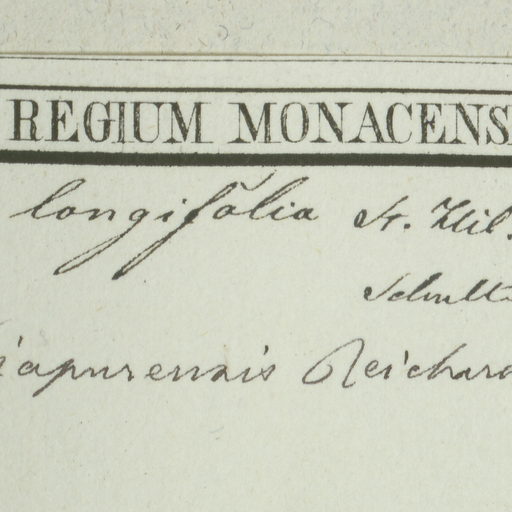 REGIUM MONACENS
longifolia St. Hil.
Schult
iapurensis Reichard